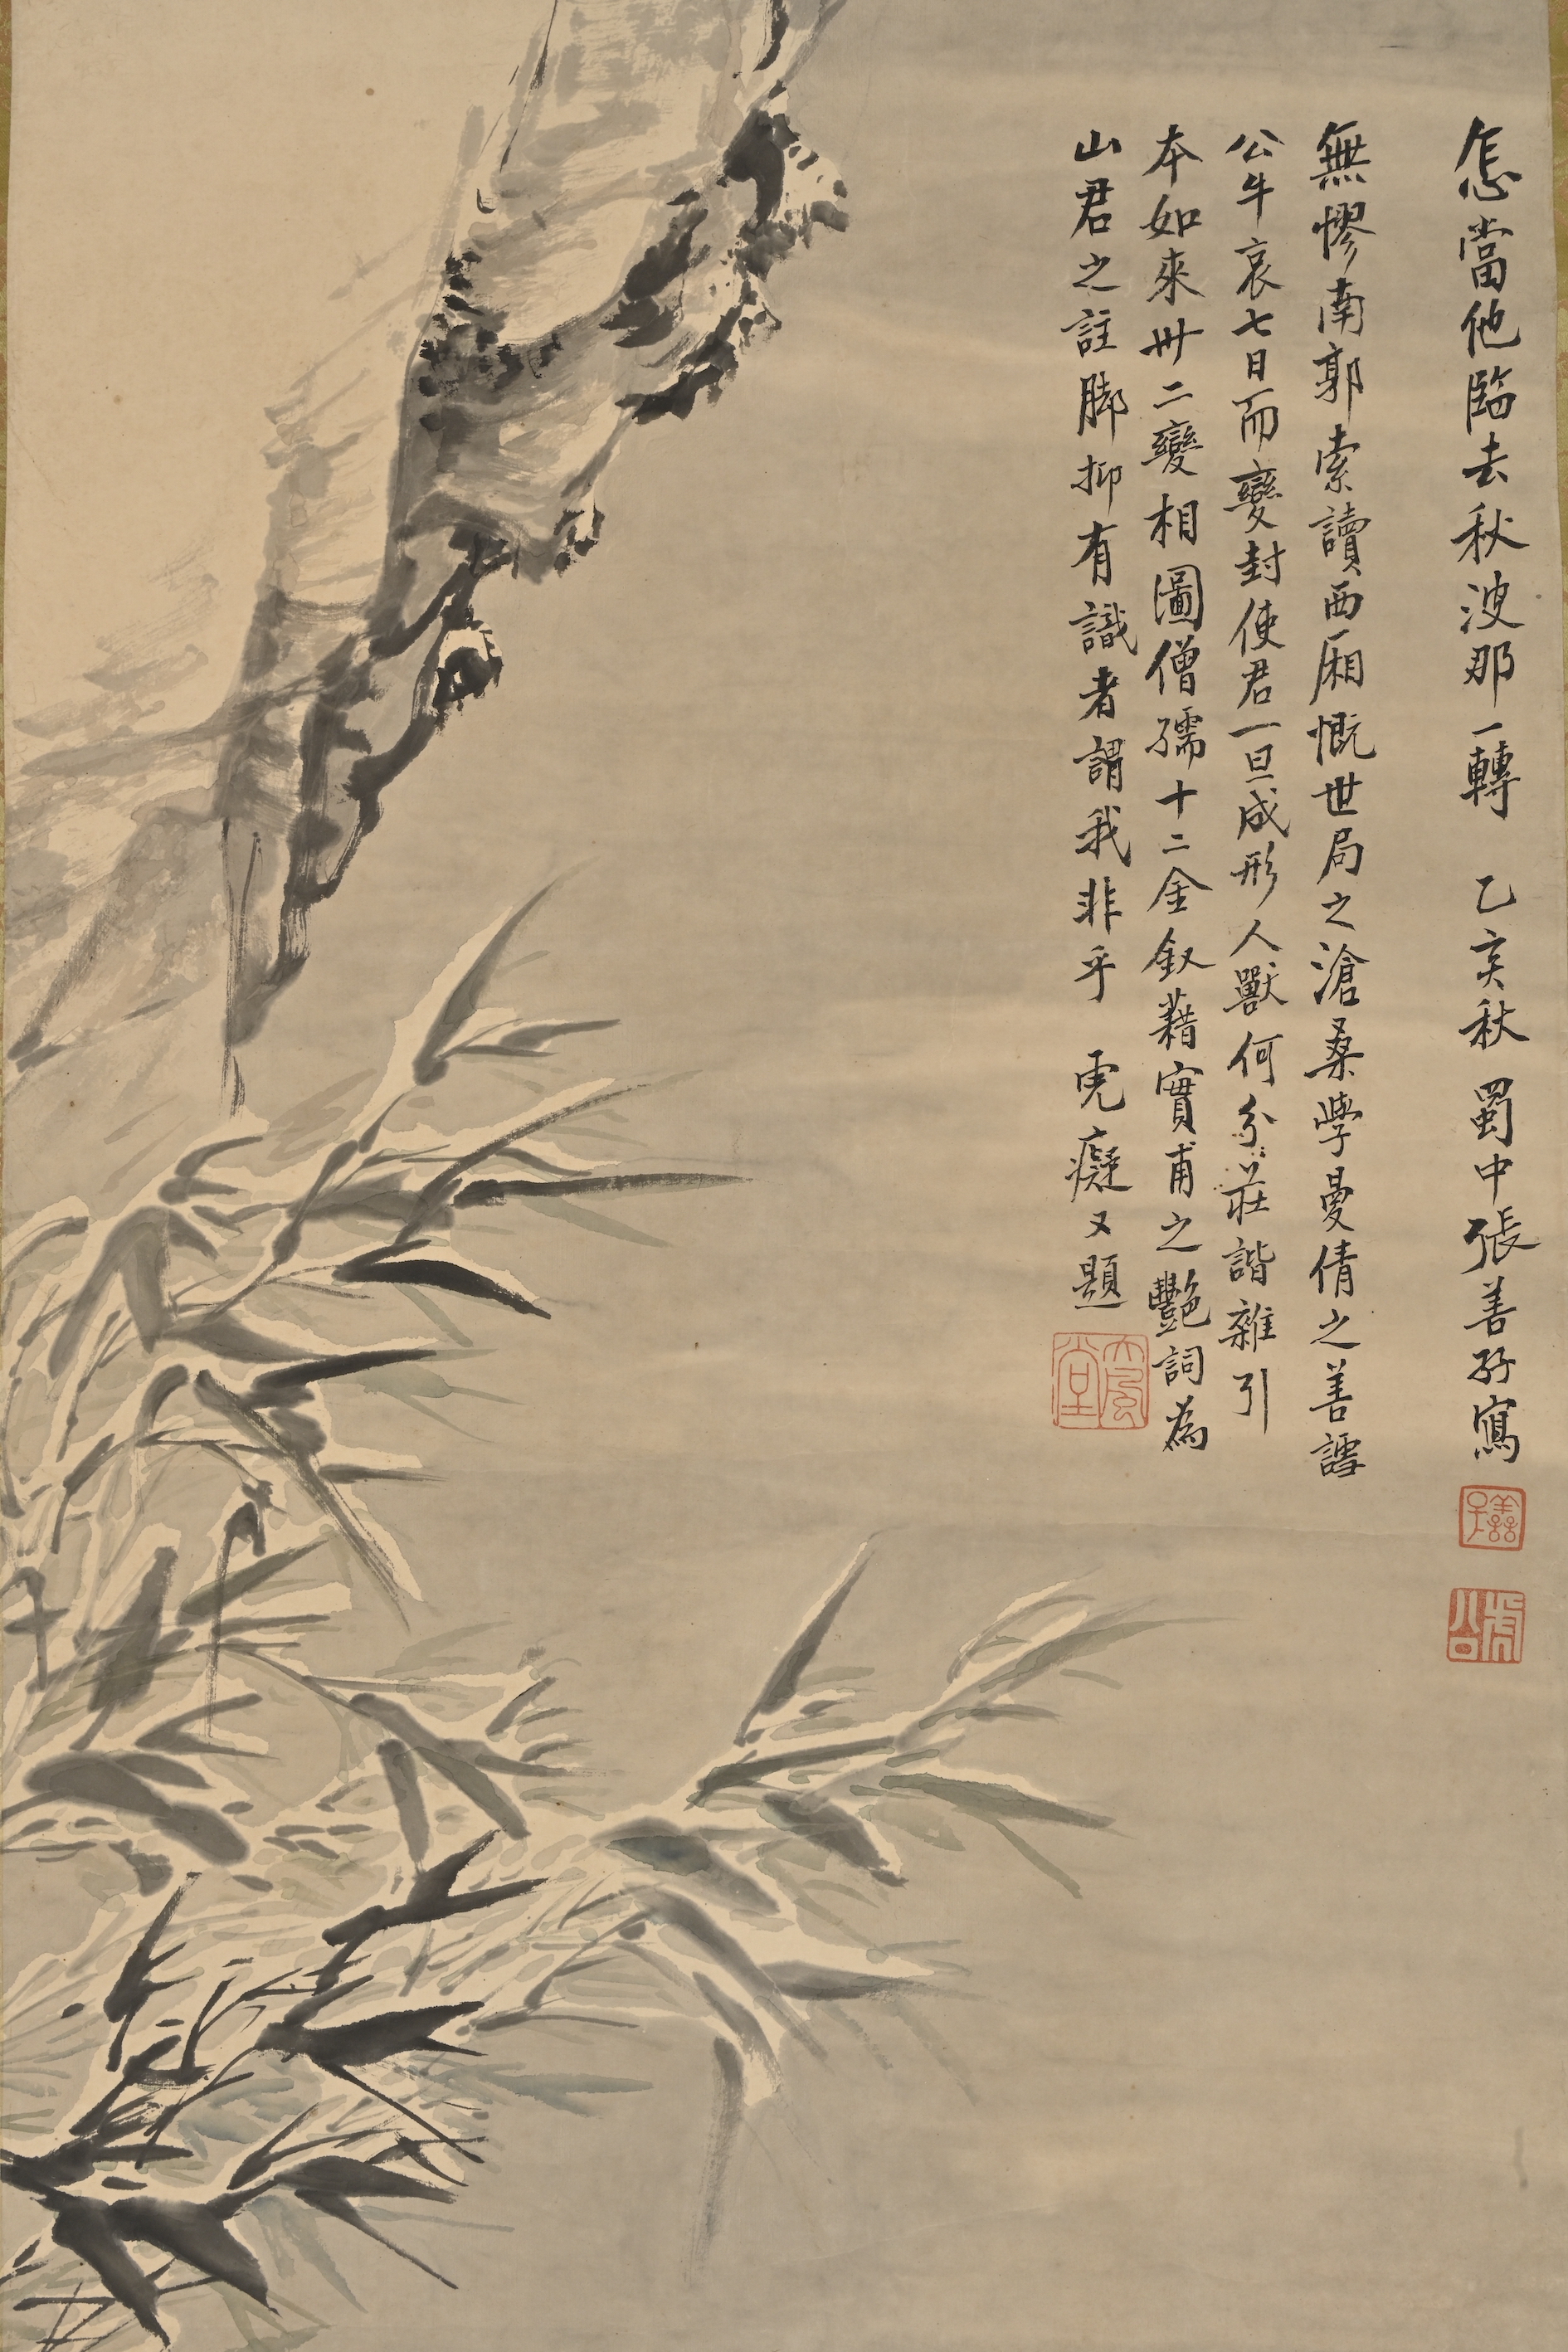 怎當他臨去秋波那一轉 乙亥秋 蜀中張善孖寫
無憀南郭索讀西厢慨世局之滄桑學曼倩之善謔
公牛哀七日而變封使君一旦成形人獸何分莊諧雜引
本如來卅二變相圖僧孺十二金釵藉實甫之艷詞為
山君之註脚抑有識者謂我非乎 虎癡又題
大風堂
善孖
虎公